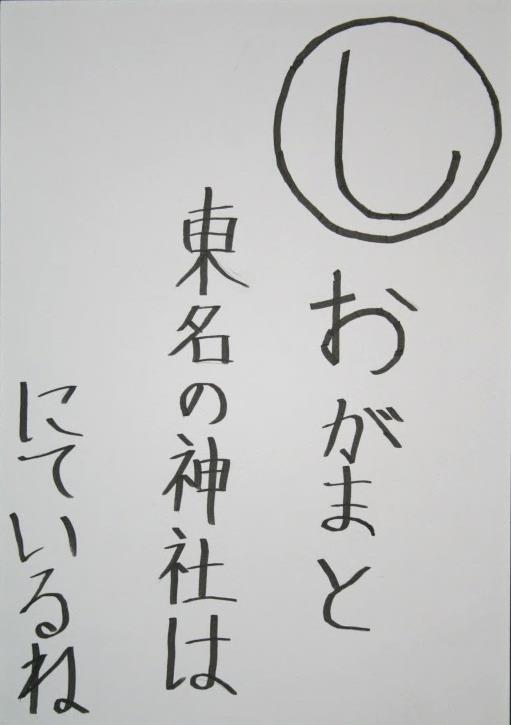 しおがまと
東名の神社は
にているね